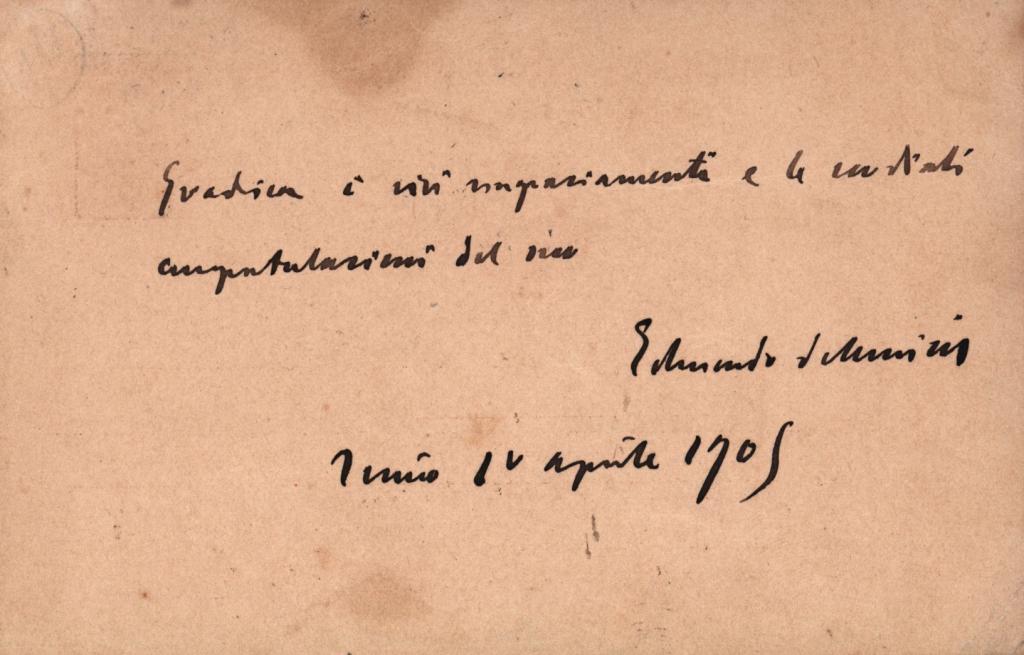 Gradisca i vivi ringraziamenti e le cordiali
congratulazioni del suo
Edmondo De Amicis
Torino 1º aprile 1905